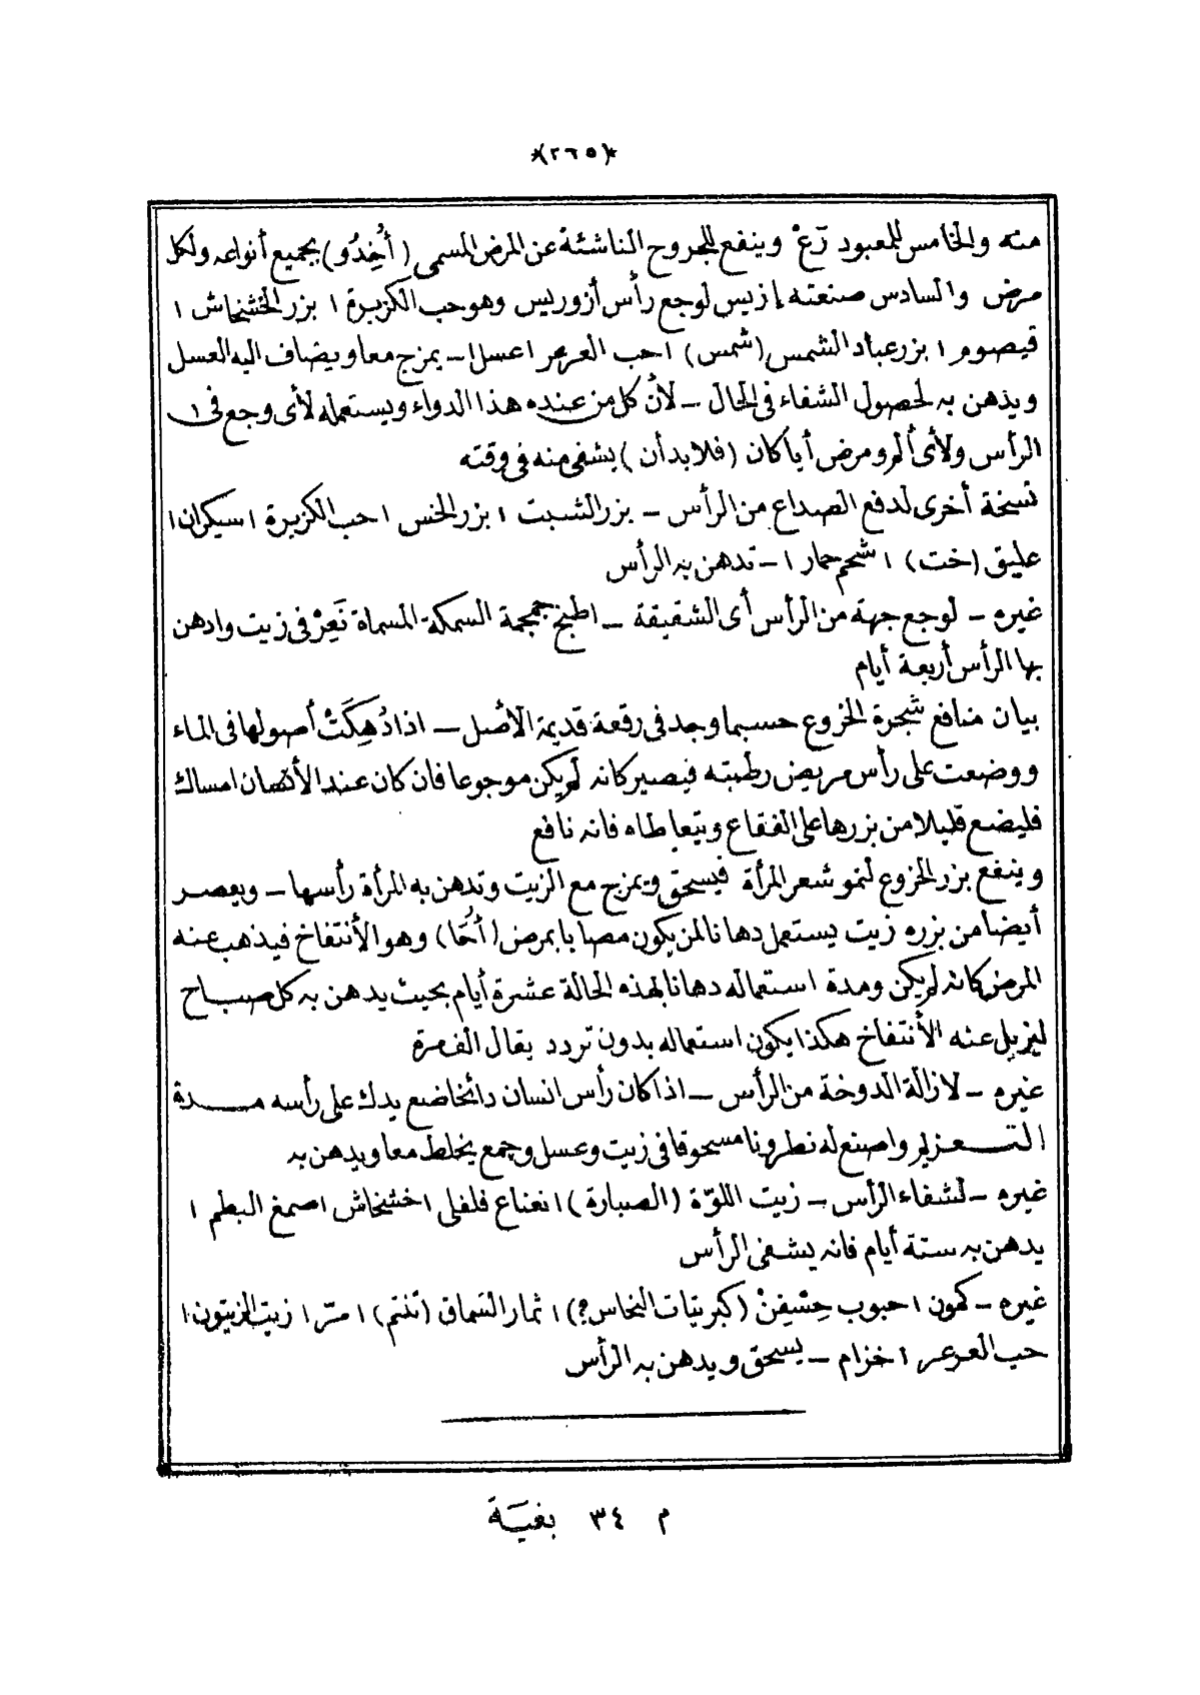 *(٢٦٥)*
منه والخامس للمعبود رَعْ وينفع للجروح الناشئة عن المرض المسمى (أُخِدُو) بجميع أنواعه ولكل
مرض والسادس صنعته إزيس لوجع رأس أزوريس وهو حب الكزبرة ١ بزر الخشخاش ١
قيصوم ١ بزر عباد الشمس (شمس) ١ حب العرعر ١ عسل ١ – يمزج معا ويضاف اليه العسل
ويدهن به لحصول الشفاء فى الحال – لأن كل من عنده هذا الدواء ويستعمله لأى وجع فى
الرأس ولأى ألم ومرض أيا كان (فلا بد أن) يشفى منه فى وقته
نسخة أخرى لدفع الصداع من الرأس – بزر الشبت ١ بزر الخس ١ حب الكزبرة ١ سيكران ١
عليق (خت) ١ شحم حمار ١ – تدهن به الرأس
غيره – لوجع جهة من الرأس أى الشقيقة – اطبخ جمجمة السمكة المسماة نَعِرْ فى زيت وادهن
بها الرأس أربعة أيام
بيان منافع شجرة الخروع حسبما وجد فى رقعة قديمة الأصل – اذا دُهِكَتْ أصولها فى الماء
ووضعت على رأس مريض رطبته فيصير كانه لم يكن موجوعا فان كان عند الأنسان امساك
فليضع قليلا من بزرها على الفقاع ويتعاطاه فانه نافع
وينفع بزر الخروع لنمو شعر المرأة فيسحق ويمزج مع الزيت وتدهن به المرأة رأسها – ويعصر
أيضا من بزره زيت يستعمل دهانا لمن يكون مصابا بمرض (أُخَا) وهو الأنتفاخ فيذهب عنه
المرض كانه لم يكن ومدة استعماله دهانا لهذه الحالة عشرة أيام بحيث يدهن به كل صباح
ليزيل عنه الأنتفاخ هكذا يكون استعماله بدون تردد يقال الف مرة
غيره – لازالة الدوخة من الرأس – اذا كان رأس انسان دائخا ضع يدك على رأسه مدة
التعزيم واصنع له نطرونا مسحوقا فى زيت وعسل وجمع يخلط معا ويدهن به
غيره – لشفاء الرأس – زيت اللوّة (الصبارة) ١ نعناع فلفلى ١ خشخاش ١ صمغ البطم ١
يدهن به ستة أيام فانه يشفى الرأس
غيره – كمون ١ حبوب حِسْفِنْ (كبريتات النحاس؟) ١ ثمار السماق (تنتم) ١ مرّ ١ زيت الزيتون ١
حب العرعر ١ خزام – يسحق ويدهن به الرأس
م ٣٤ بغيَة